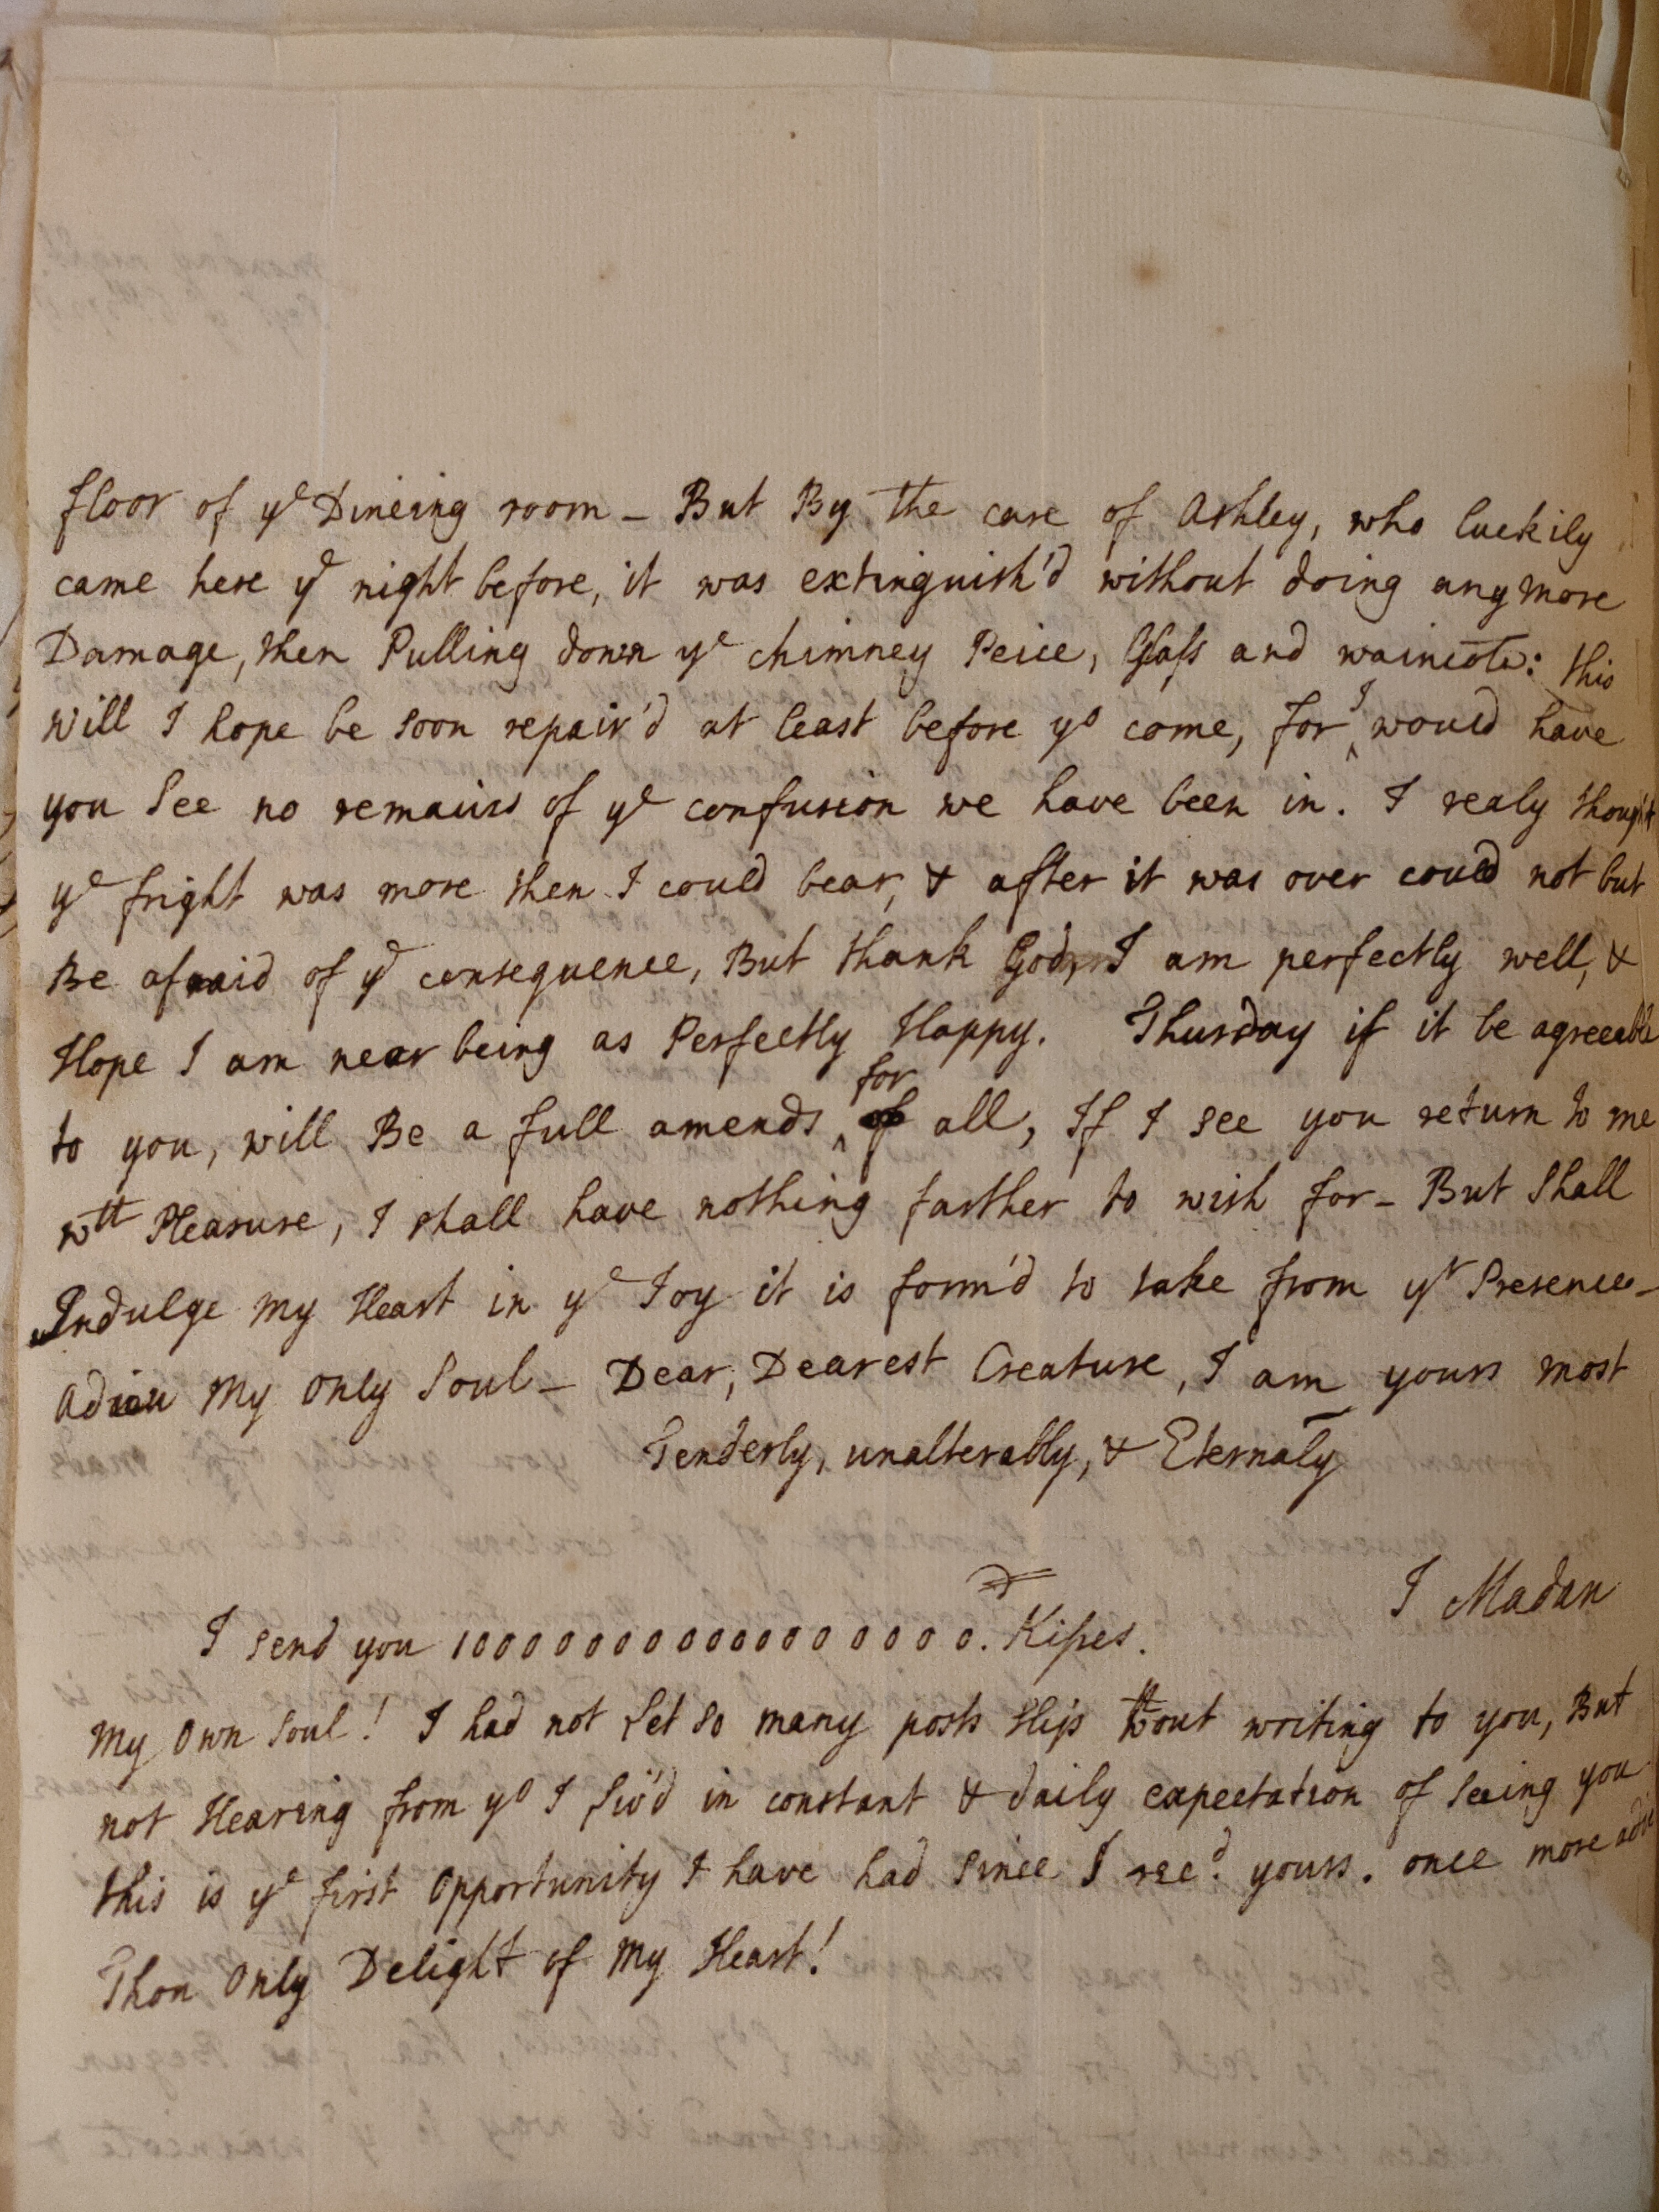 floor of yᵉ Dineing room – But By The care of Ashley, who luckily
came here yᵉ night before, it was extinguish'd without doing any more
Damage, then Pulling down yᵉ chimney Peice, Glass and wainscote: this
will I hope be soon repair'd at least before yᵒ come, for I would have
you See no remains of yᵉ confusion we have been in. I realy thought
yᵉ fright was more then I could bear, & after it was over could not but
Be afraid of yᵉ consequence, But thank God, I am perfectly well, &
Hope I am near being as Perfectly Happy. Thursday if it be agreeable
to you, will Be a full amends for all, If I see you return to me
wᵗʰ Pleasure, I shall have nothing farther to wish for – But Shall
Indulge my Heart in yᵉ Joy it is form'd to take from yʳ Presence –
Adieu My only Soul – Dear, Dearest Creature, I am yours most
Tenderly, unalterably, & Eternaly
J Madan
I send you 100000000000000000. Kisses.
My Own Soul! I had not Let so many posts slip wᵗʰout writing to you, But
not Hearing from yᵒ I Liv'd in constant & daily expectation of Seeing you
this is yᵉ first Opportunity I have had Since I recᵈ. yours. once more
Thou Only Delight of My Heart!